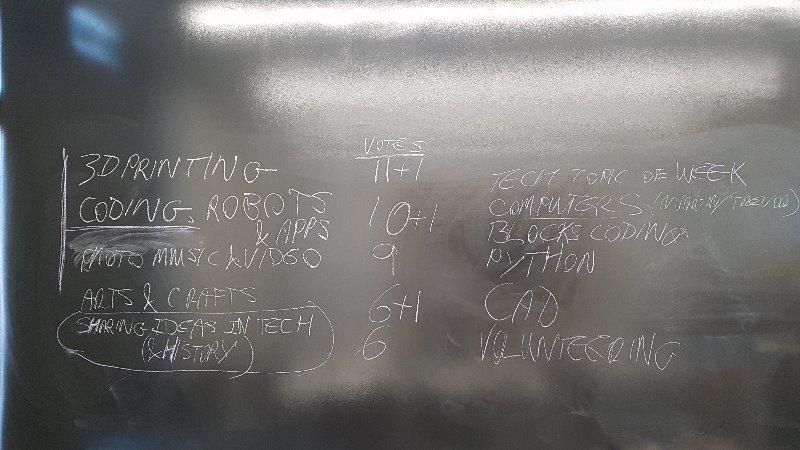 VOTES
3D PRINTING 11+1
CODING, ROBOTS & APPS 10+1
PHOTO MUSIC & VIDEO 9
ARTS & CRAFTS 6+1
SHARING IDEAS IN TECH (& HISTORY) 6
TECH TOPIC OF WEEK
COMPUTERS
BLOCKS CODING
PYTHON
CAD
VOLUNTEERING